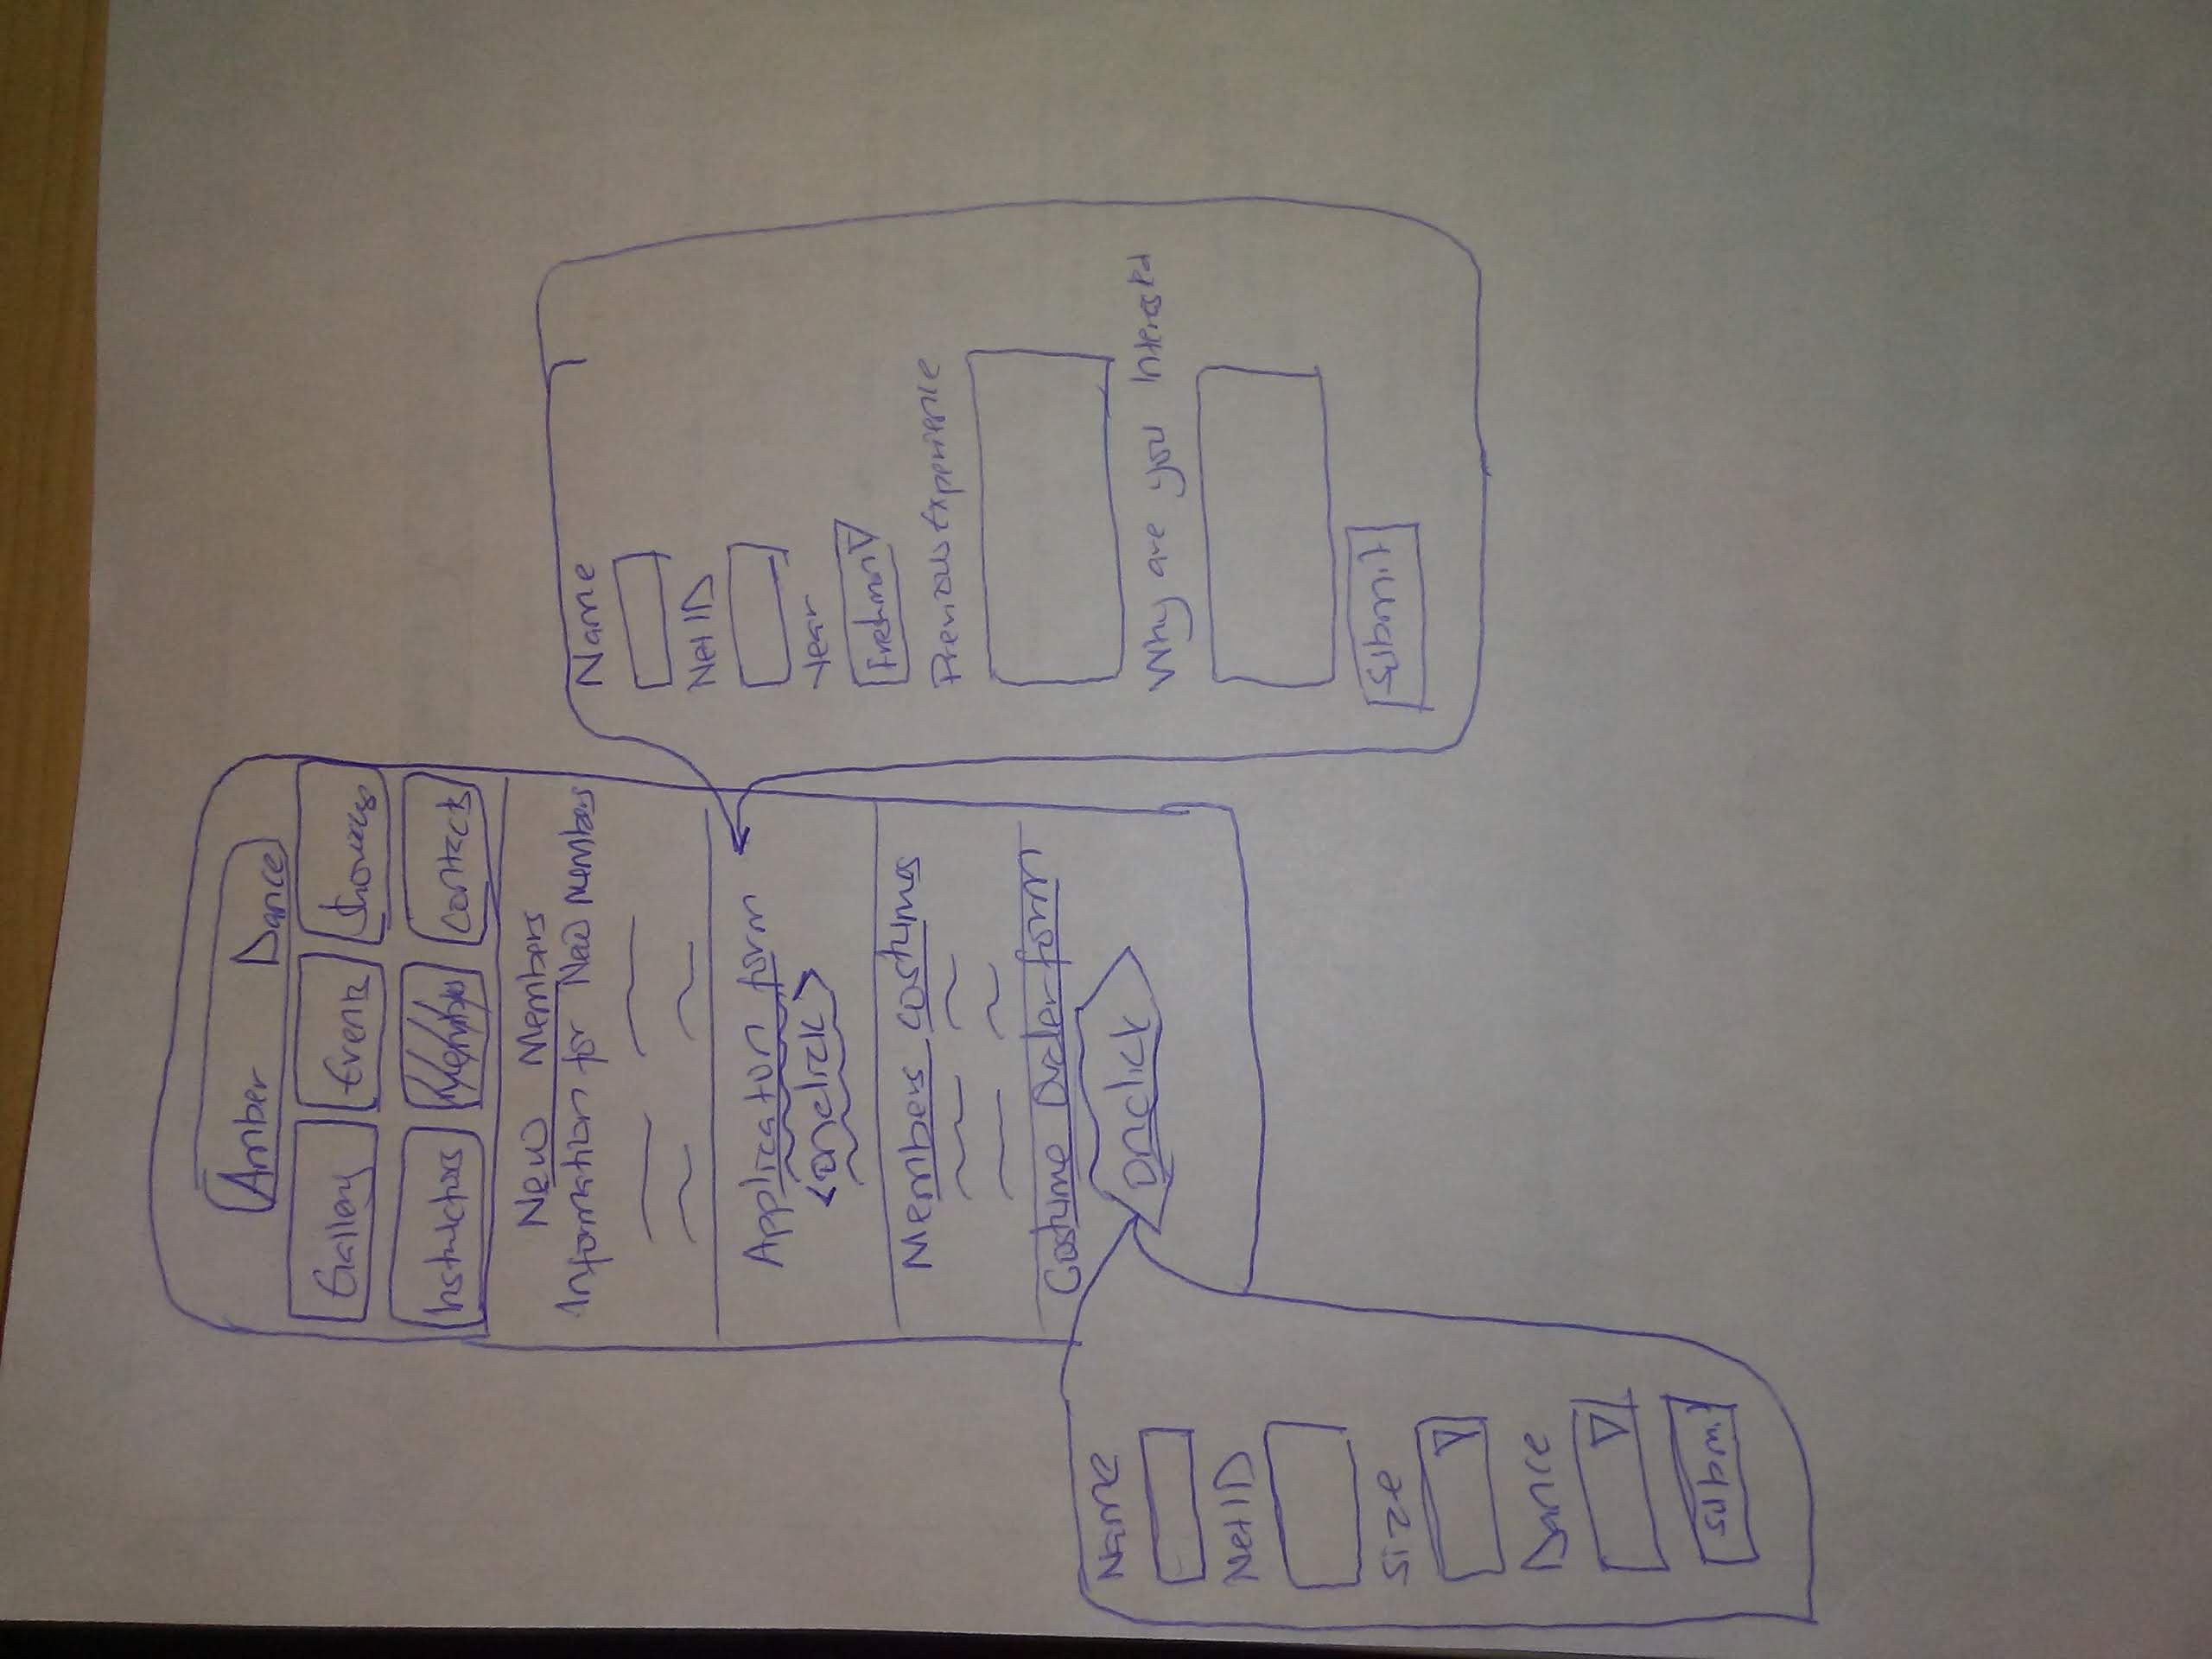 Amber Dance
Gallery Events Showcase
Instructors Members Contacts
New Members
Information for New Members
Application form
<onclick>
Members costumes
Costume Order form
onclick
Name
NetID
Year
Freshman
Previous Experience
Why are you Interested
Submit
Name
NetID
Size
Dance
Submit